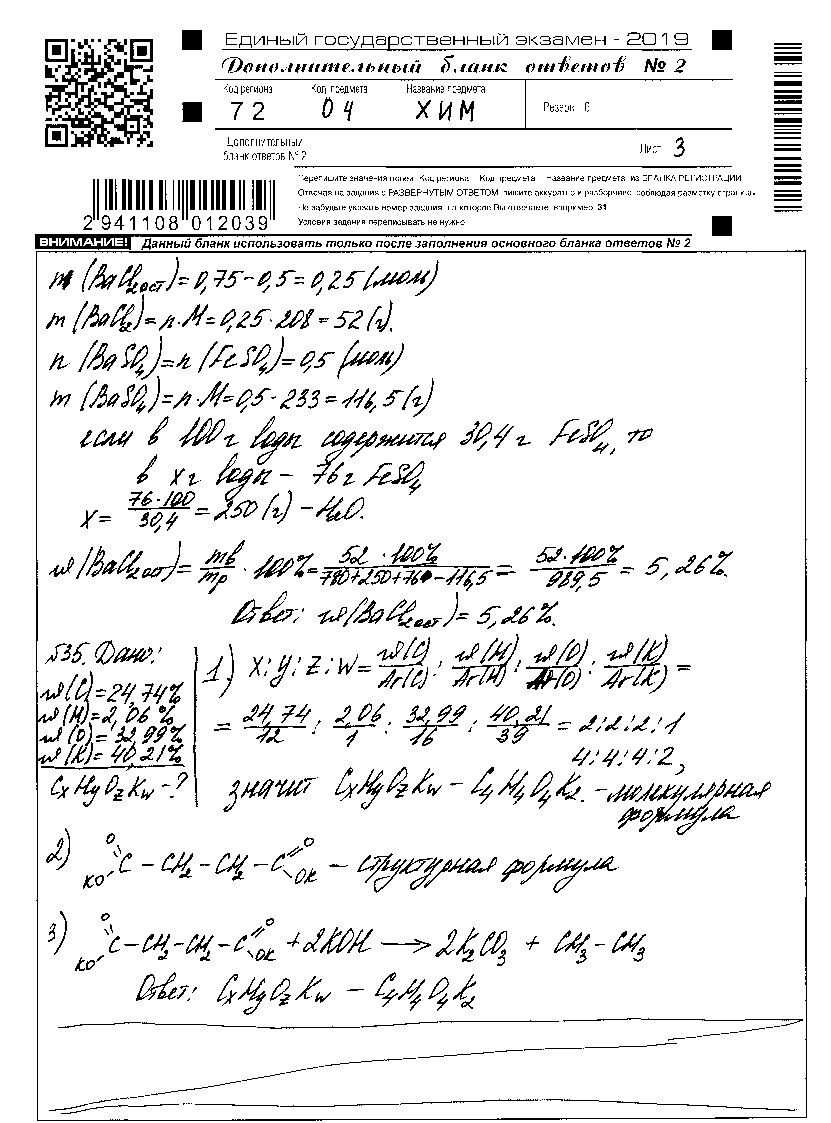 Единый государственный экзамен - 2019
Дополнительный бланк ответов № 2
Код региона Код предмета Название предмета
72 04 ХИМ Резерв - 6
Дополнительный бланк ответов № 2 Лист 3
Перепишите значения полей "Код региона", "Код предмета", "Название предмета" из БЛАНКА РЕГИСТРАЦИИ
Отвечая на задания с РАЗВЕРНУТЫМ ОТВЕТОМ, пишите аккуратно и разборчиво, соблюдая разметку страницы
Не забудьте указать номер задания, на которое Вы отвечаете, например, 31
Условия задания переписывать не нужно
2 941108 012039
ВНИМАНИЕ! Данный бланк использовать только после заполнения основного бланка ответов № 2
n (BaCl2ост) = 0,75-0,5 = 0,25 (моль)
m (BaCl2) = n·M = 0,25·208 = 52 (г).
n (BaSO4) = n (FeSO4) = 0,5 (моль)
m (BaSO4) = n·M = 0,5·233 = 116,5 (г)
если в 100 г воды содержится 30,4 г FeSO4, то
в x г воды - 76 г FeSO4
X = 76·100/30,4 = 250 (г) - H2O.
w (BaCl2ост) = mв/mр · 100% = 52·100%/(780+250+76-116,5) = 52·100%/989,5 = 5,26%.
Ответ: w (BaCl2ост) = 5,26%.
№35. Дано:
w(C) = 24,74%
w(H) = 2,06%
w(O) = 32,99%
w(K) = 40,21%
CxHyOzKw - ?
1) X:Y:Z:W = w(C)/Ar(C) : w(H)/Ar(H) : w(O)/Ar(O) : w(K)/Ar(K) =
= 24,74/12 : 2,06/1 : 32,99/16 : 40,21/39 = 2:2:2:1
4:4:4:2,
значит CxHyOzKw - C4H4O4K2. - молекулярная
формула
2) O KO C - CH2 - CH2 - C O OK - структурная формула
3) O KO C - CH2 - CH2 - C O OK + 2KOH → 2K2CO3 + CH3 - CH3
Ответ: CxHyOzKw - C4H4O4K2